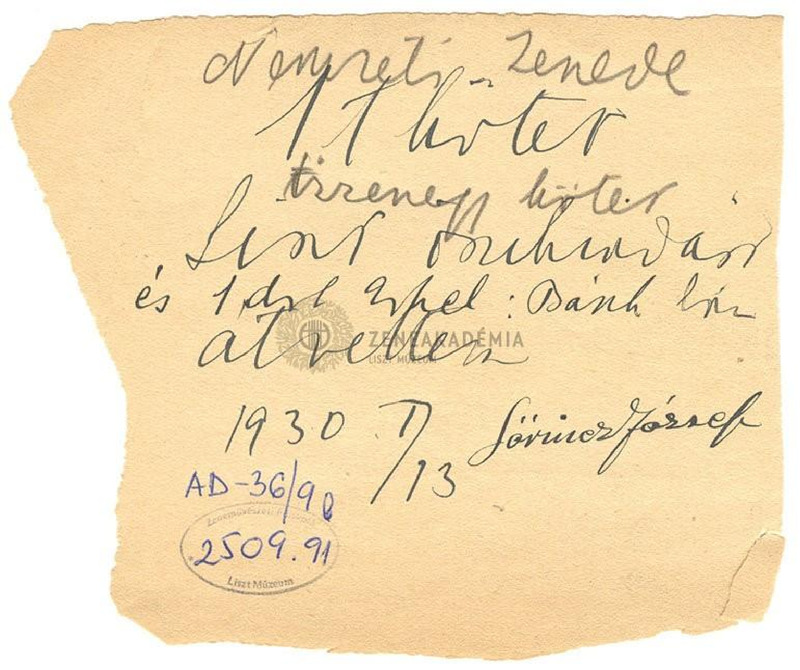 Nemzeti Zenede
11 kötet
tizenegy kötet
Liszt
és 1 drb Erkel: Bánk bán
átvettem
1930 I/13 Lőrincz József
AD-36/9
2509.91
Liszt Múzeum
ZENEAKADÉMIA
LISZT MÚZEUM